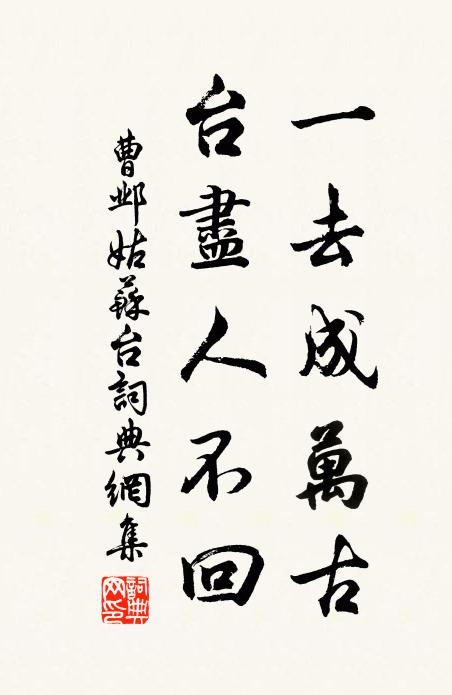 一去成萬古
台盡人不回
曹邺姑蘇台詞典網集
詞典網印